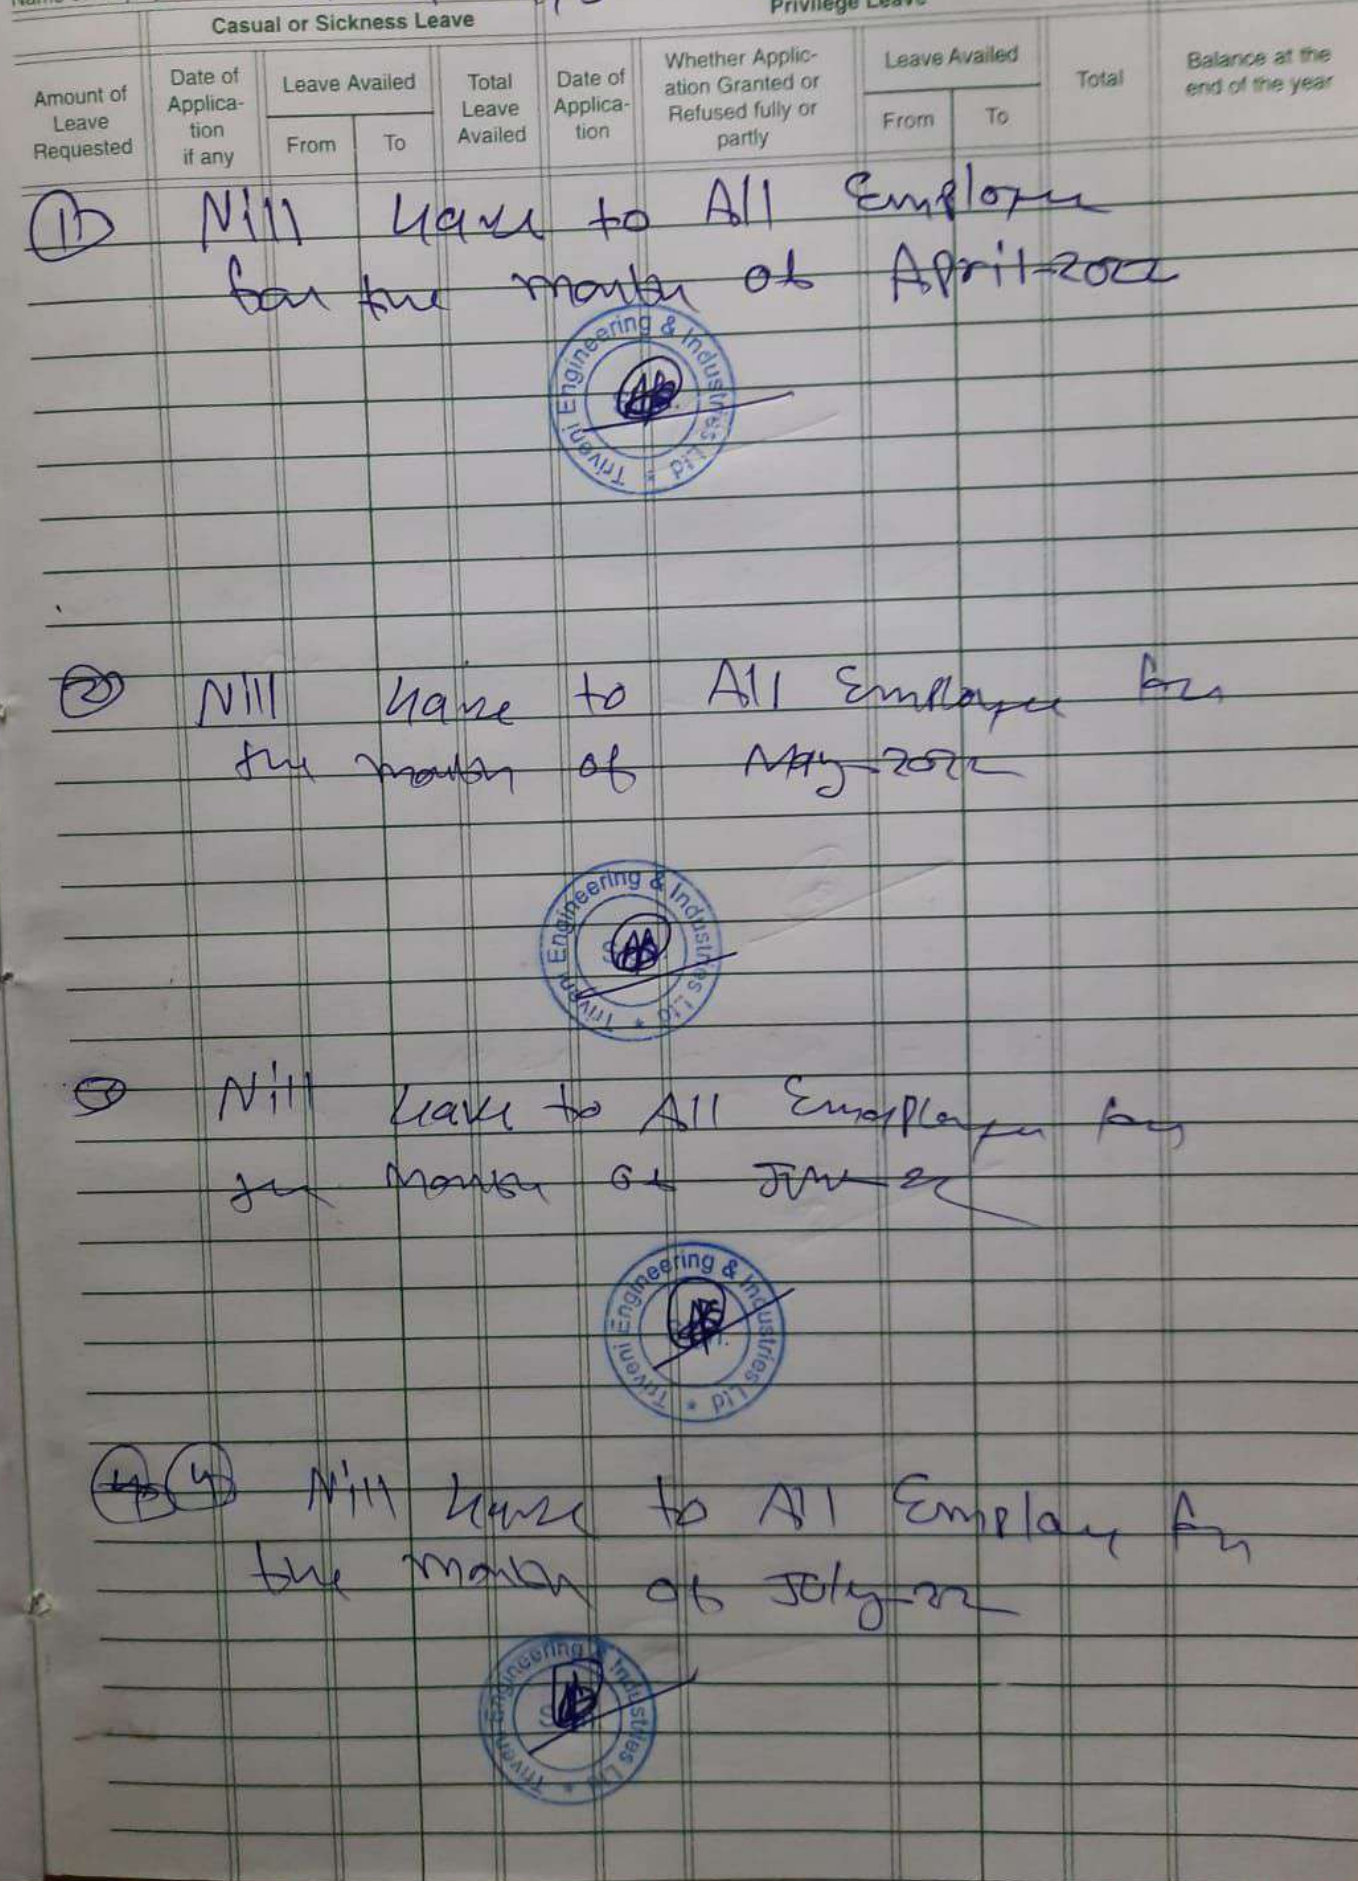 Casual or Sickness Leave
Privilege Leave
Amount of Leave Requested
Date of Applica-tion if any
Leave Availed
From
To
Total Leave Availed
Date of Applica-tion
Whether Applic-ation Granted or Refused fully or partly
Leave Availed
From
To
Total
Balance at the end of the year
1) Nill leave to All Employee
for the month of April-2022
Triveni Engineering & Industries Ltd *
2) Nill leave to All Employee for
the month of May-2022
Triveni Engineering & Industries Ltd *
3) Nill leave to All Employee for
the month of June-22
Triveni Engineering & Industries Ltd *
4) Nill leave to All Employee for
the month of July-22
Triveni Engineering & Industries Ltd *